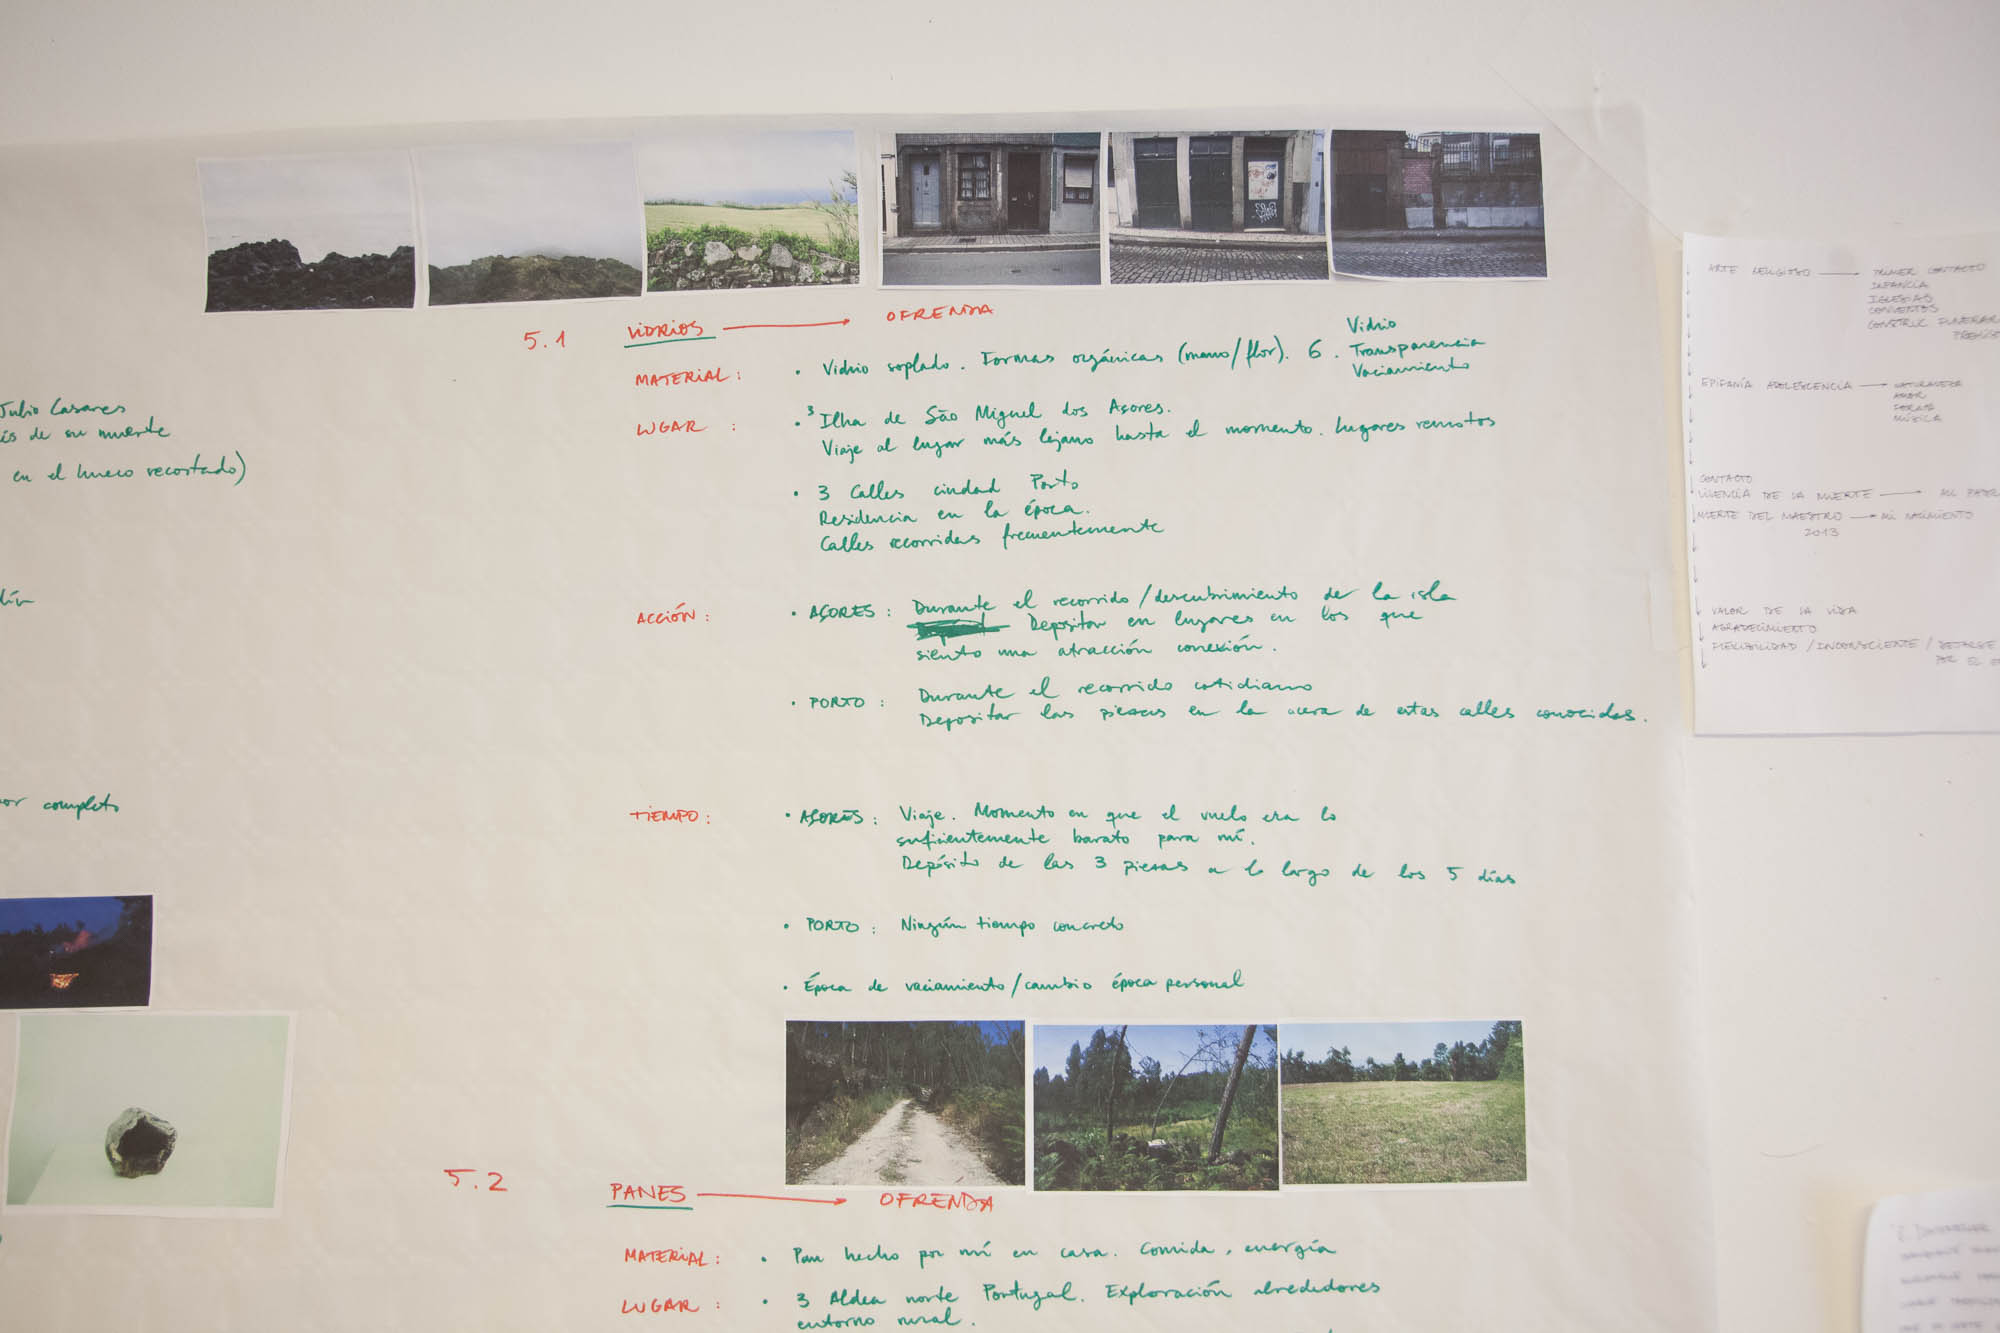 5.1 VIDRIOS → OFRENDA
MATERIAL: • Vidrio soplado. Formas orgánicas (mano/flor). 6.
Vidrio
Transparencia
Vaciamiento
LUGAR: • 3 Ilha de São Miguel dos Açores.
Viaje al lugar más lejano hasta el momento. Lugares remotos
• 3 Calles ciudad Porto
Residencia en la época.
Calles recorridas frecuentemente
ACCIÓN: • AÇORES: Durante el recorrido/descubrimiento de la isla
Depositar en lugares en los que
siento una atracción conexión.
• PORTO: Durante el recorrido cotidiano
Depositar las piezas en la acera de estas calles conocidas.
TIEMPO: • AÇORES: Viaje. Momento en que el vuelo era lo
suficientemente barato para mí.
Depósito de las 3 piezas a lo largo de los 5 días
• PORTO: Ningún tiempo concreto
• Época de vaciamiento/cambio época personal
5.2 PANES → OFRENDA
MATERIAL: • Pan hecho por mí en casa. Comida, energía
LUGAR: • 3 Aldea norte Portugal. Exploración alrededores
entorno rural.
Julio Casares
de su muerte
en el hueco recortado)
completo
ARTE RELIGIOSO → PRIMER CONTACTO
INFANCIA
IGLESIAS
CONVENTOS
CONSTRUC
EPIFANÍA ADOLESCENCIA → NATURALEZA
AMOR
MÚSICA
CONTACTO
VIVENCIA DE LA MUERTE →
MUERTE DEL MAESTRO → MI NACIMIENTO
2013
VALOR DE LA VIDA
AGRADECIMIENTO
FLEXIBILIDAD / INCONSCIENTE / DEJARSE
POR EL